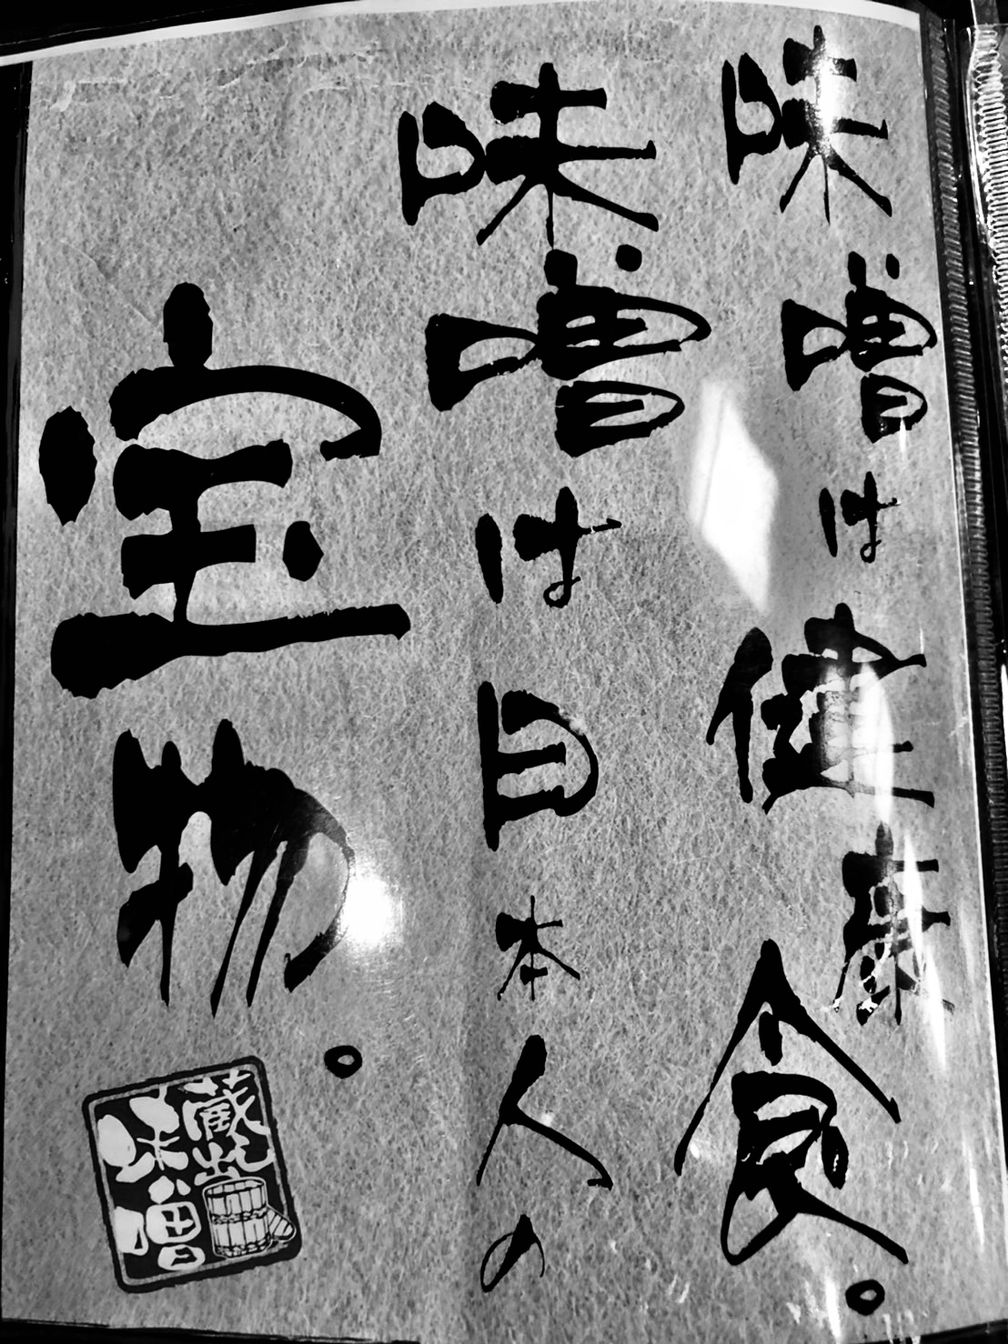 味噌は健康食。
味噌は日本人の
宝物。
蔵出
味噌